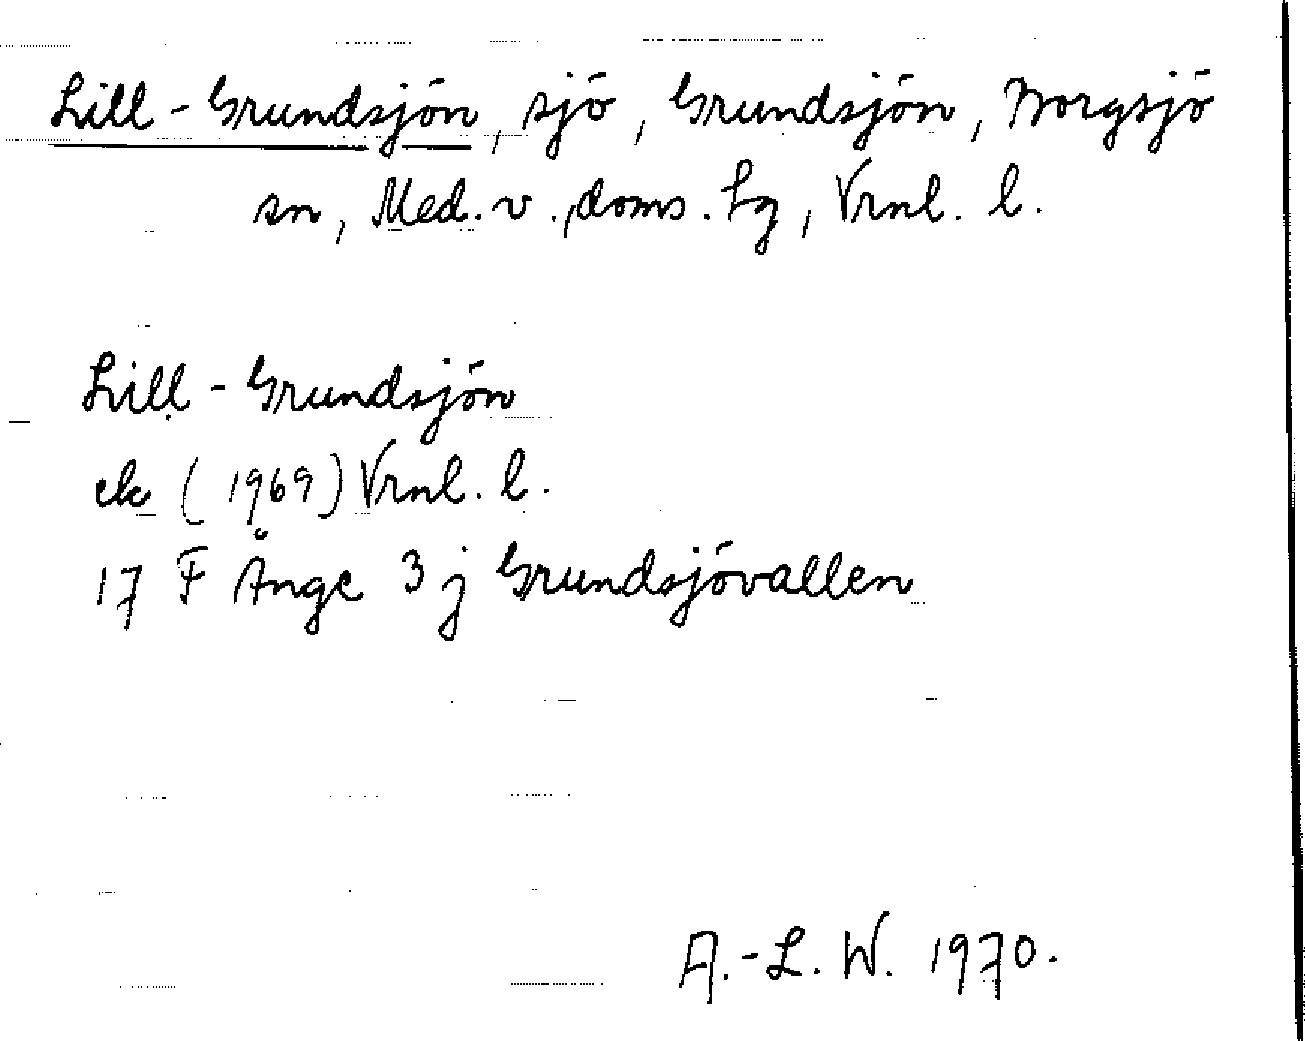 Lill-Grundsjön, sjö, Grundsjön, Borgsjö
sn, Med. v., doms. lg, Vrnl. l.
Lill-Grundsjön
ek (1969) Vrnl. l.
17 F Ånge 3 j Grundsjövallen
A.-L. W. 1970.